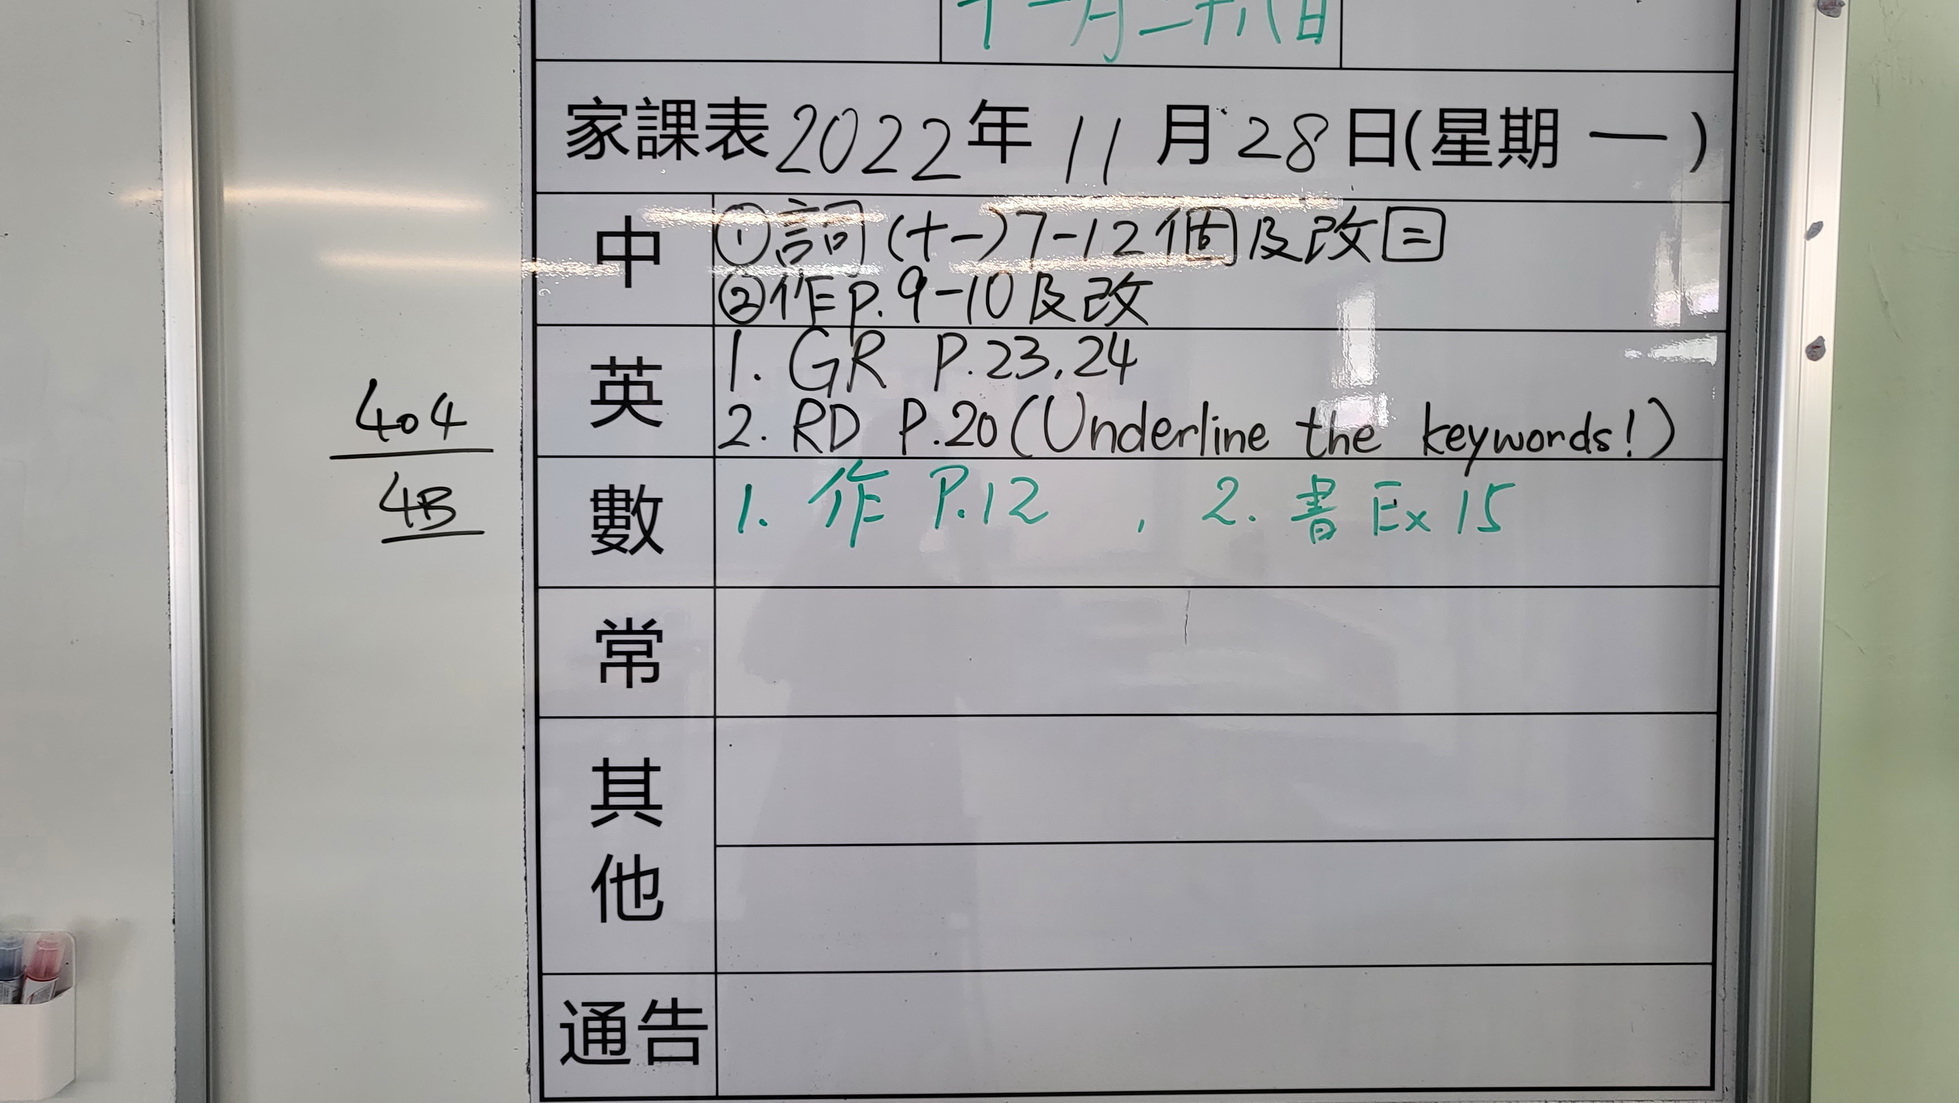 十一月二十八日
家課表 2022年 11月 28日(星期一)
中
①詞(十一)7-12個及改
②作P.9-10及改
英
1. GR P.23,24
2. RD P.20 (Underline the keywords!)
數
1. 作 P.12 , 2. 書 Ex 15
常
其他
通告
404
4B